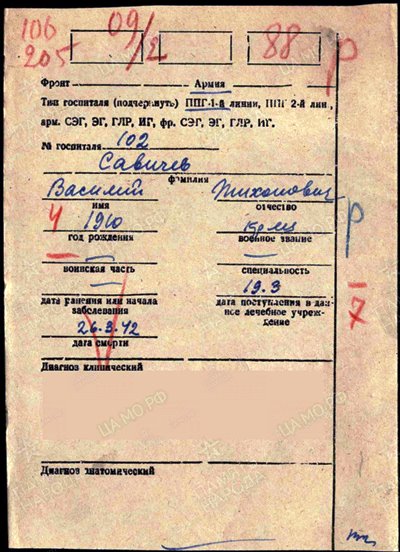 106
205
09/12
88
р
Фронт Армия
Тип госпиталя (подчеркнуть) ППГ-1-й линии, ППГ 2-й лин.,
арм. СЭГ, ЭГ, ГЛР, ИГ, фр. СЭГ, ЭГ, ГЛР, ИГ.
№ госпиталя 102
Савичев
фамилия
Василий Тихонович
имя отчество
Ч 1910 кр-мц р
год рождения военное звание
воинская часть специальность
19.3
дата ранения или начала заболевания
дата поступления в данное лечебное учреждение
7
26.3.42
дата смерти
Диагноз клинический
ЦАМО.РФ
Диагноз анатомический